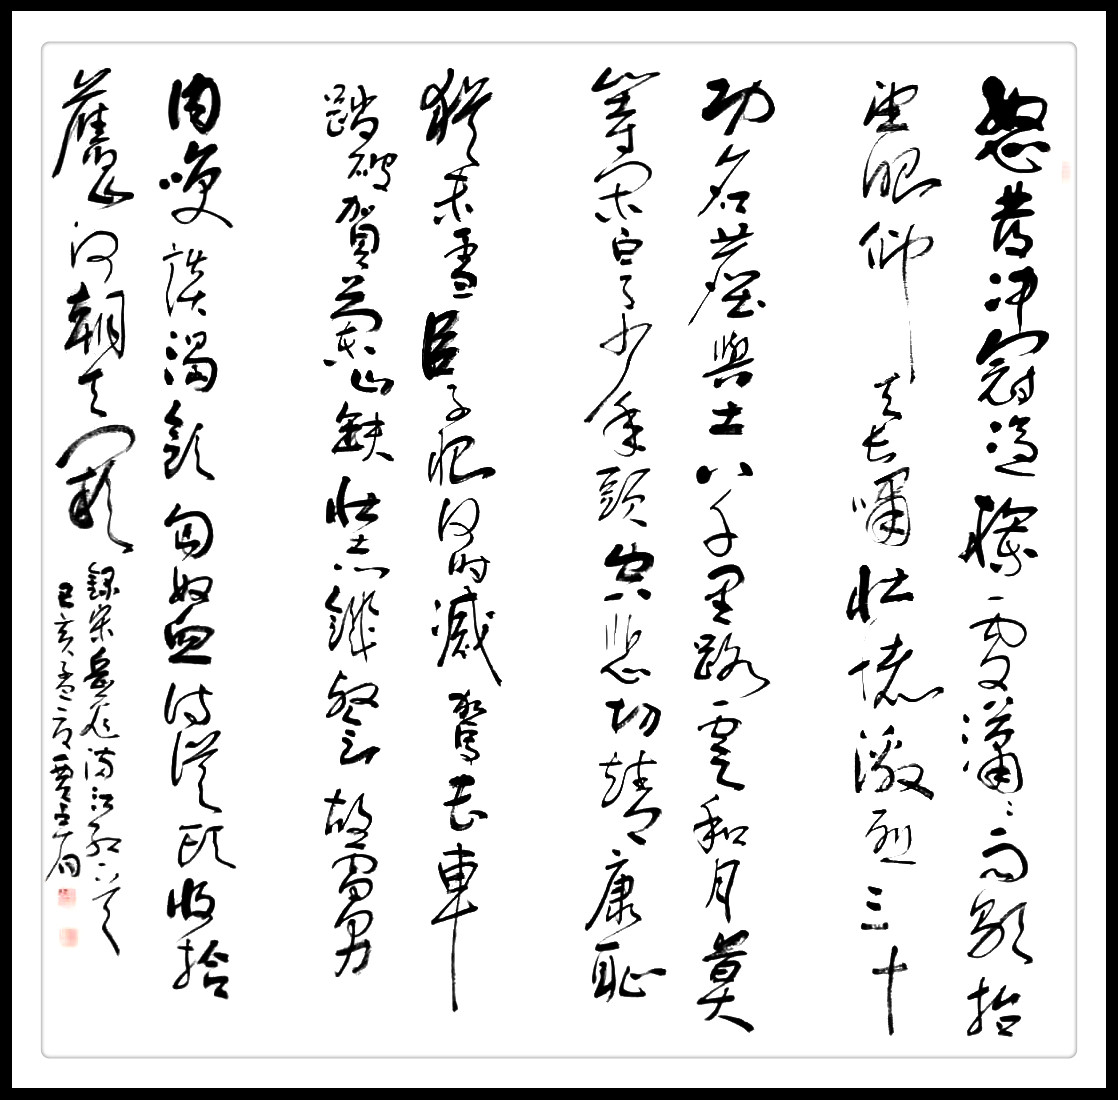 怒髮冲冠憑欄處瀟瀟雨歇抬
望眼仰天長嘯壯懷激烈三十
功名塵與土八千里路雲和月莫
等閑白了少年頭空悲切靖康恥
猶未雪臣子恨何時滅駕長車
踏破賀蘭山缺壯志饑餐胡虜
肉笑談渴飲匈奴血待從頭收拾
舊山河朝天闕
錄宋岳飛滿江紅
己亥孟夏賈